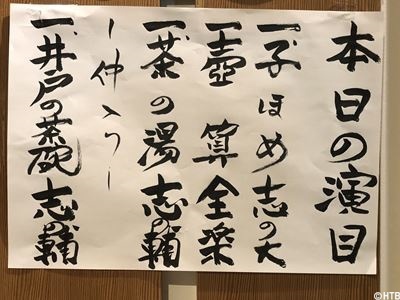 本日の演目
一、子ほめ 志の大
一、壺算 全楽
一、茶の湯 志の輔
ー仲入りー
一、井戸の茶碗 志の輔
©HTB